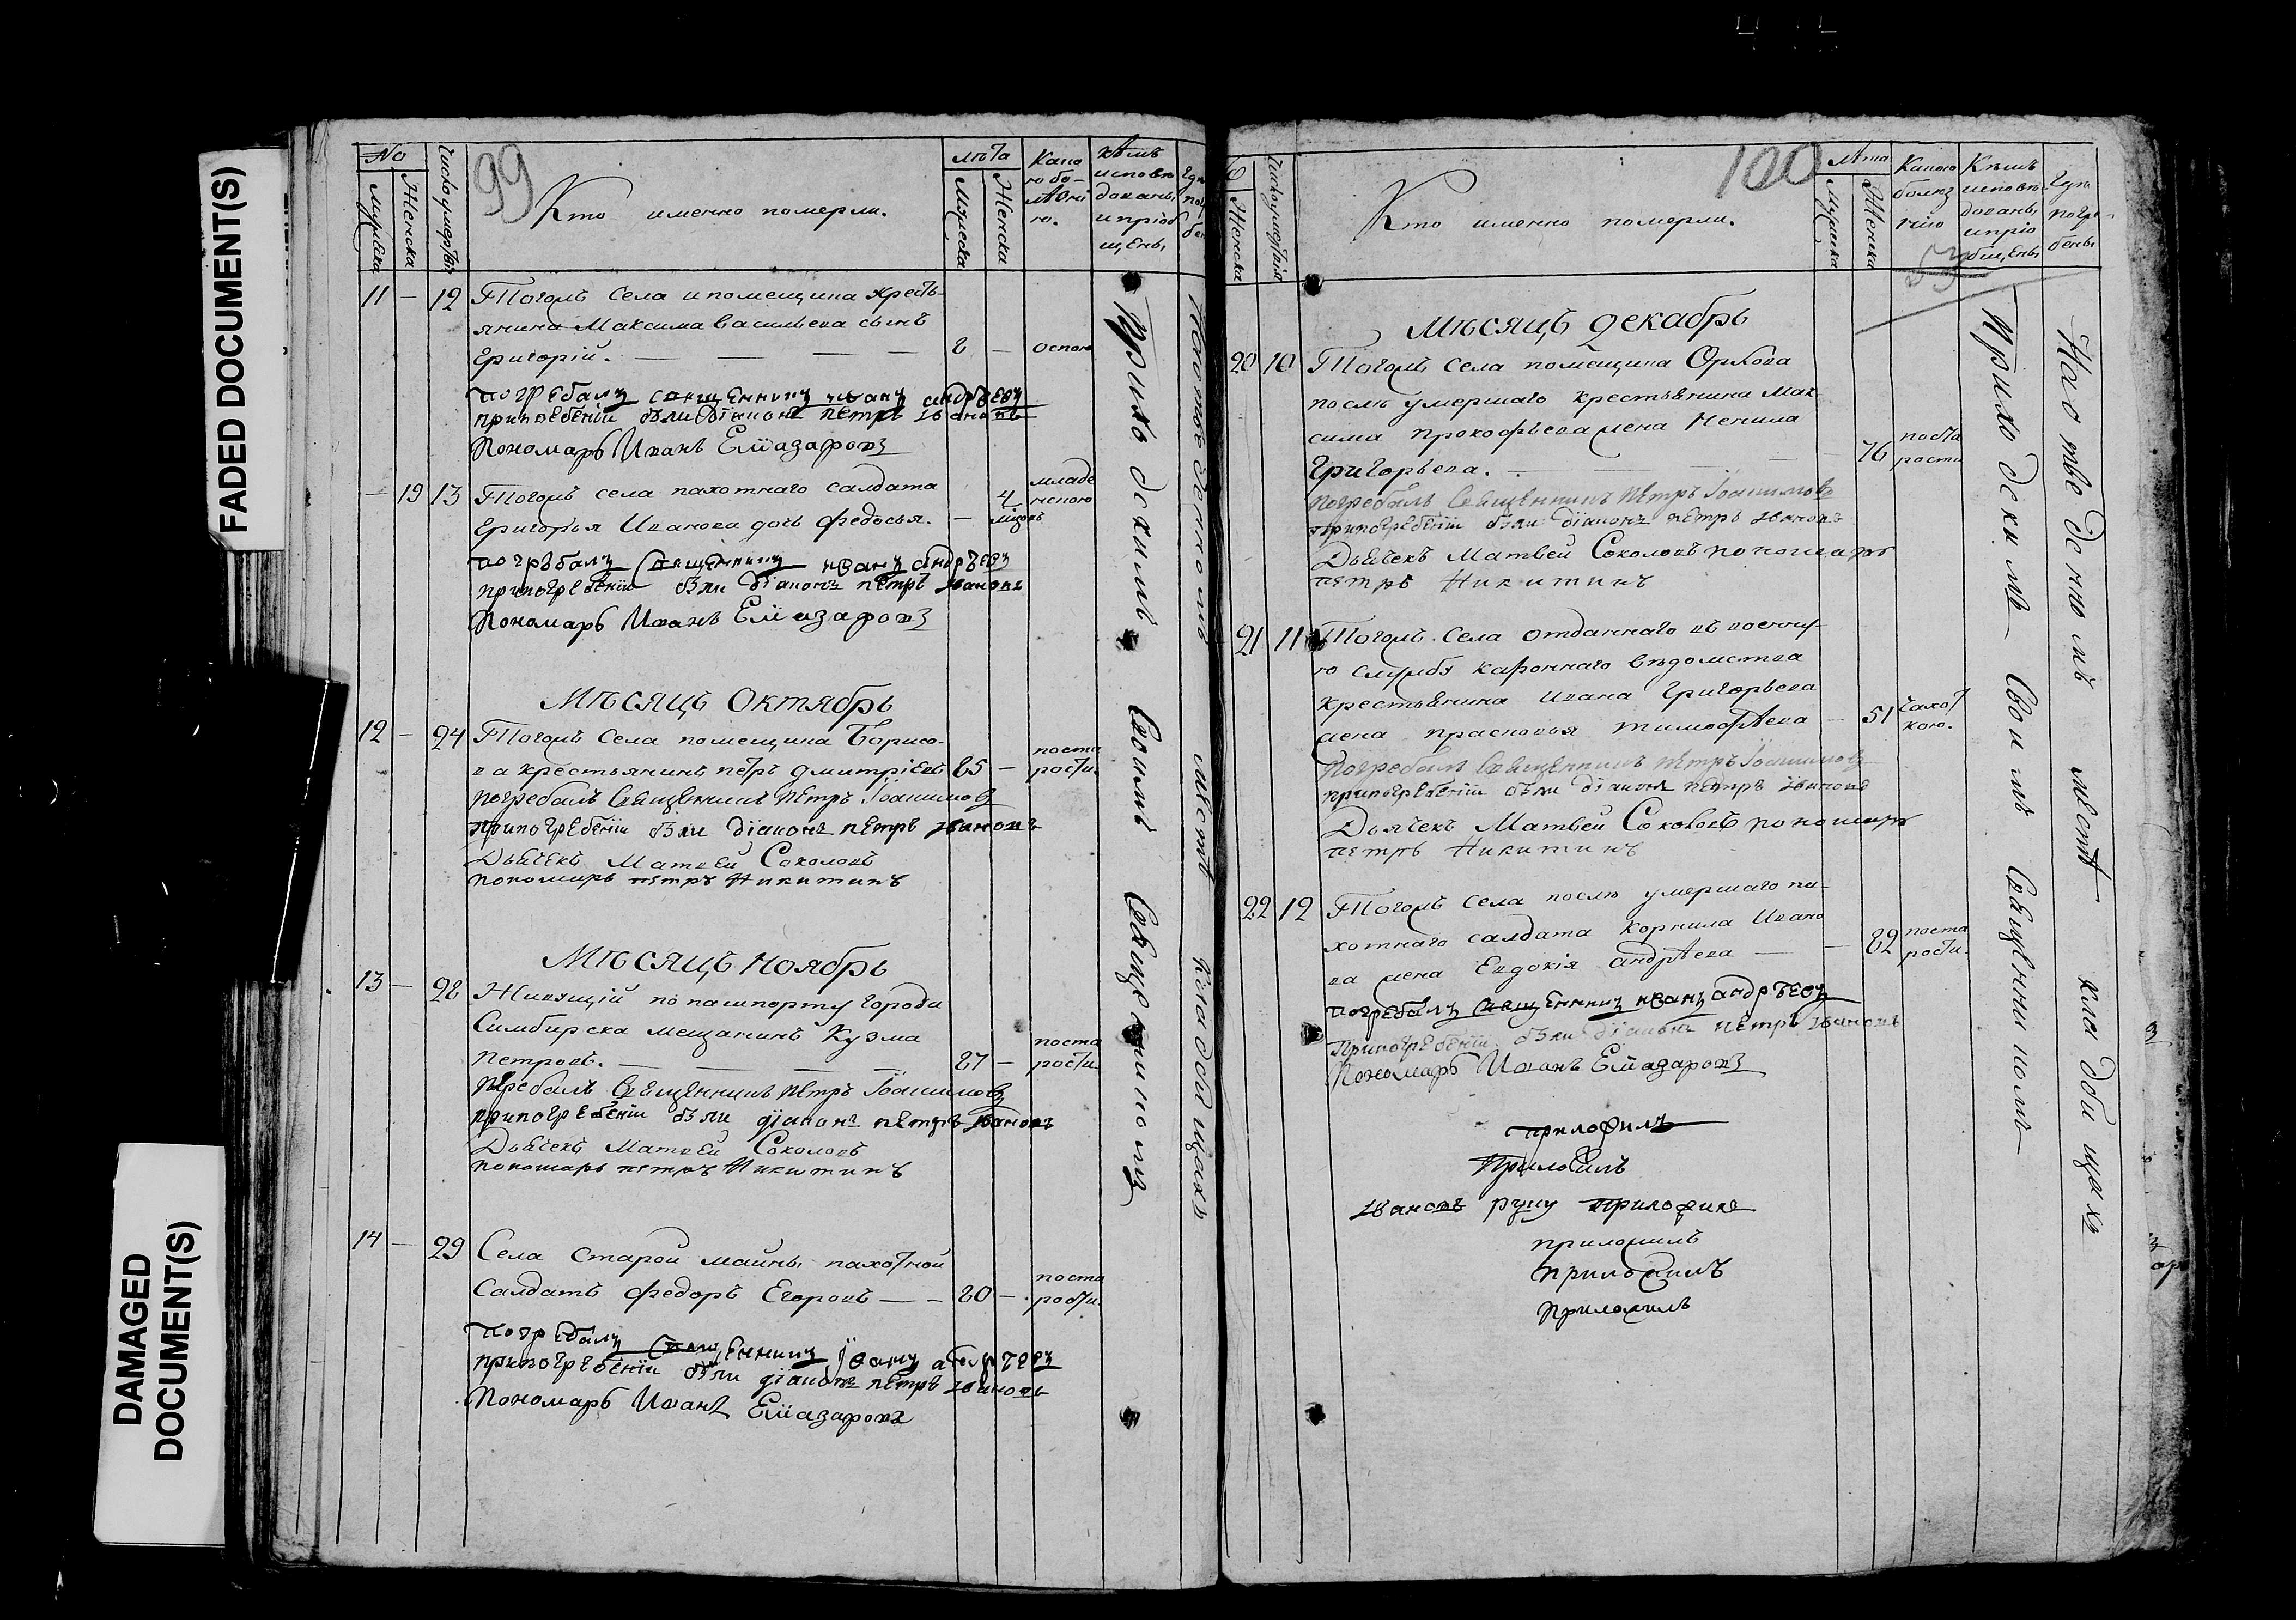 FADED DOCUMENT(S)
DAMAGED
DOCUMENT(S)
99
№
Мужеска
Женска
Число умертвія
Кто именно померли.
лѣта
Мужеска
Женска
Како
ю бо-
лѣзні
ю.
кѣмъ
исповѣ
дованы
и пріоб
щены
11 — 12 Тогожъ села и помещика кресть-
янина Максима Васильева сынъ
Григорій. — — — — 8 — оспою
погребалъ священникъ иванъ андреевъ
припогребеніи были діаконъ петръ ивановъ
Пономарь Иванъ Еліазаровъ
— 19 13 Тогожъ села пахотнаго салдата
Григорья Иванова дочь Федосья. — 4 мѣцовъ младе
нскою
погребалъ священникъ иванъ андреевъ
припогребеніи были діаконъ петръ ивановъ
Пономарь Иванъ Еліазаровъ
Мѣсяцъ Октябрь
12 — 24 Тогожъ села помещика Борисо-
ва крестьянинъ петръ дмитріевъ 85 — поста
рости.
погребалъ Священникъ Петръ Іоакимовъ
припогребеніи были діаконъ петръ ивановъ
Дьячекъ Матвей Соколовъ
пономарь петръ Никитинъ
Мѣсяцъ Ноябрь
13 — 28 Живущій по пашпорту города
Симбирска мещанинъ Кузма
Петровъ. — — — — 87 — поста
рости.
погребалъ Священникъ Петръ Іоакимовъ
припогребеніи были діаконъ петръ ивановъ
Дьячекъ Матвей Соколовъ
пономарь петръ Никитинъ
14 — 29 Села Старой майны пахотной
Салдатъ Федоръ Егоровъ — — 80 — поста
рости.
погребалъ священникъ іванъ андреевъ
припогребеніи были діаконъ петръ ивановъ
Пономарь Иванъ Еліазаровъ
Приходскимъ Своимъ Священникомъ
На отведенномъ местѣ кладбищахъ
100
Женска
Число умертвія
Кто именно померли.
лѣта
Мужеска
Женска
Какою
болез
нію
Кѣмъ
исповѣ
дованы
и пріо
бщены
Гдѣ
погре-
бены
53
Мѣсяцъ Декабрь
20 10 Тогожъ села помещика Орлова
послѣ умершаго крестьянина Мак-
сима Прокофьева жена Ненила
Григорьева. — — — — 76 поста
рости
Погребалъ Священникъ Петръ Іоакимовъ
припогребеніи были діаконъ петръ ивановъ
Дьячекъ Матвей Соколовъ пономарь
петръ Никитинъ
21 11 Тогожъ села отданнаго въ военну-
ю службу кароннаго вѣдомства
крестьянина Ивана Григорьева
жена Прасковья Тимофѣева — 51 чахот
кою.
Погребалъ Священникъ Петръ Іоакимовъ
припогребеніи были діаконъ петръ ивановъ
Дьячекъ Матвей Соколовъ пономарь
петръ Никитинъ
22 12 Тогожъ села послѣ умершаго па-
хотнаго салдата Корнила Ивано
ва жена Евдокія Андрѣева — — 82 поста
рости.
погребалъ священникъ иванъ андреевъ
припогребеніи были діаконъ петръ ивановъ
Пономарь Иванъ Еліазаровъ
приложилъ
Приложилъ
ивановъ руку приложилъ
приложилъ
приложилъ
Приложилъ
Приходскимъ Своимъ Священникомъ
На отведенномъ местѣ кладбищахъ